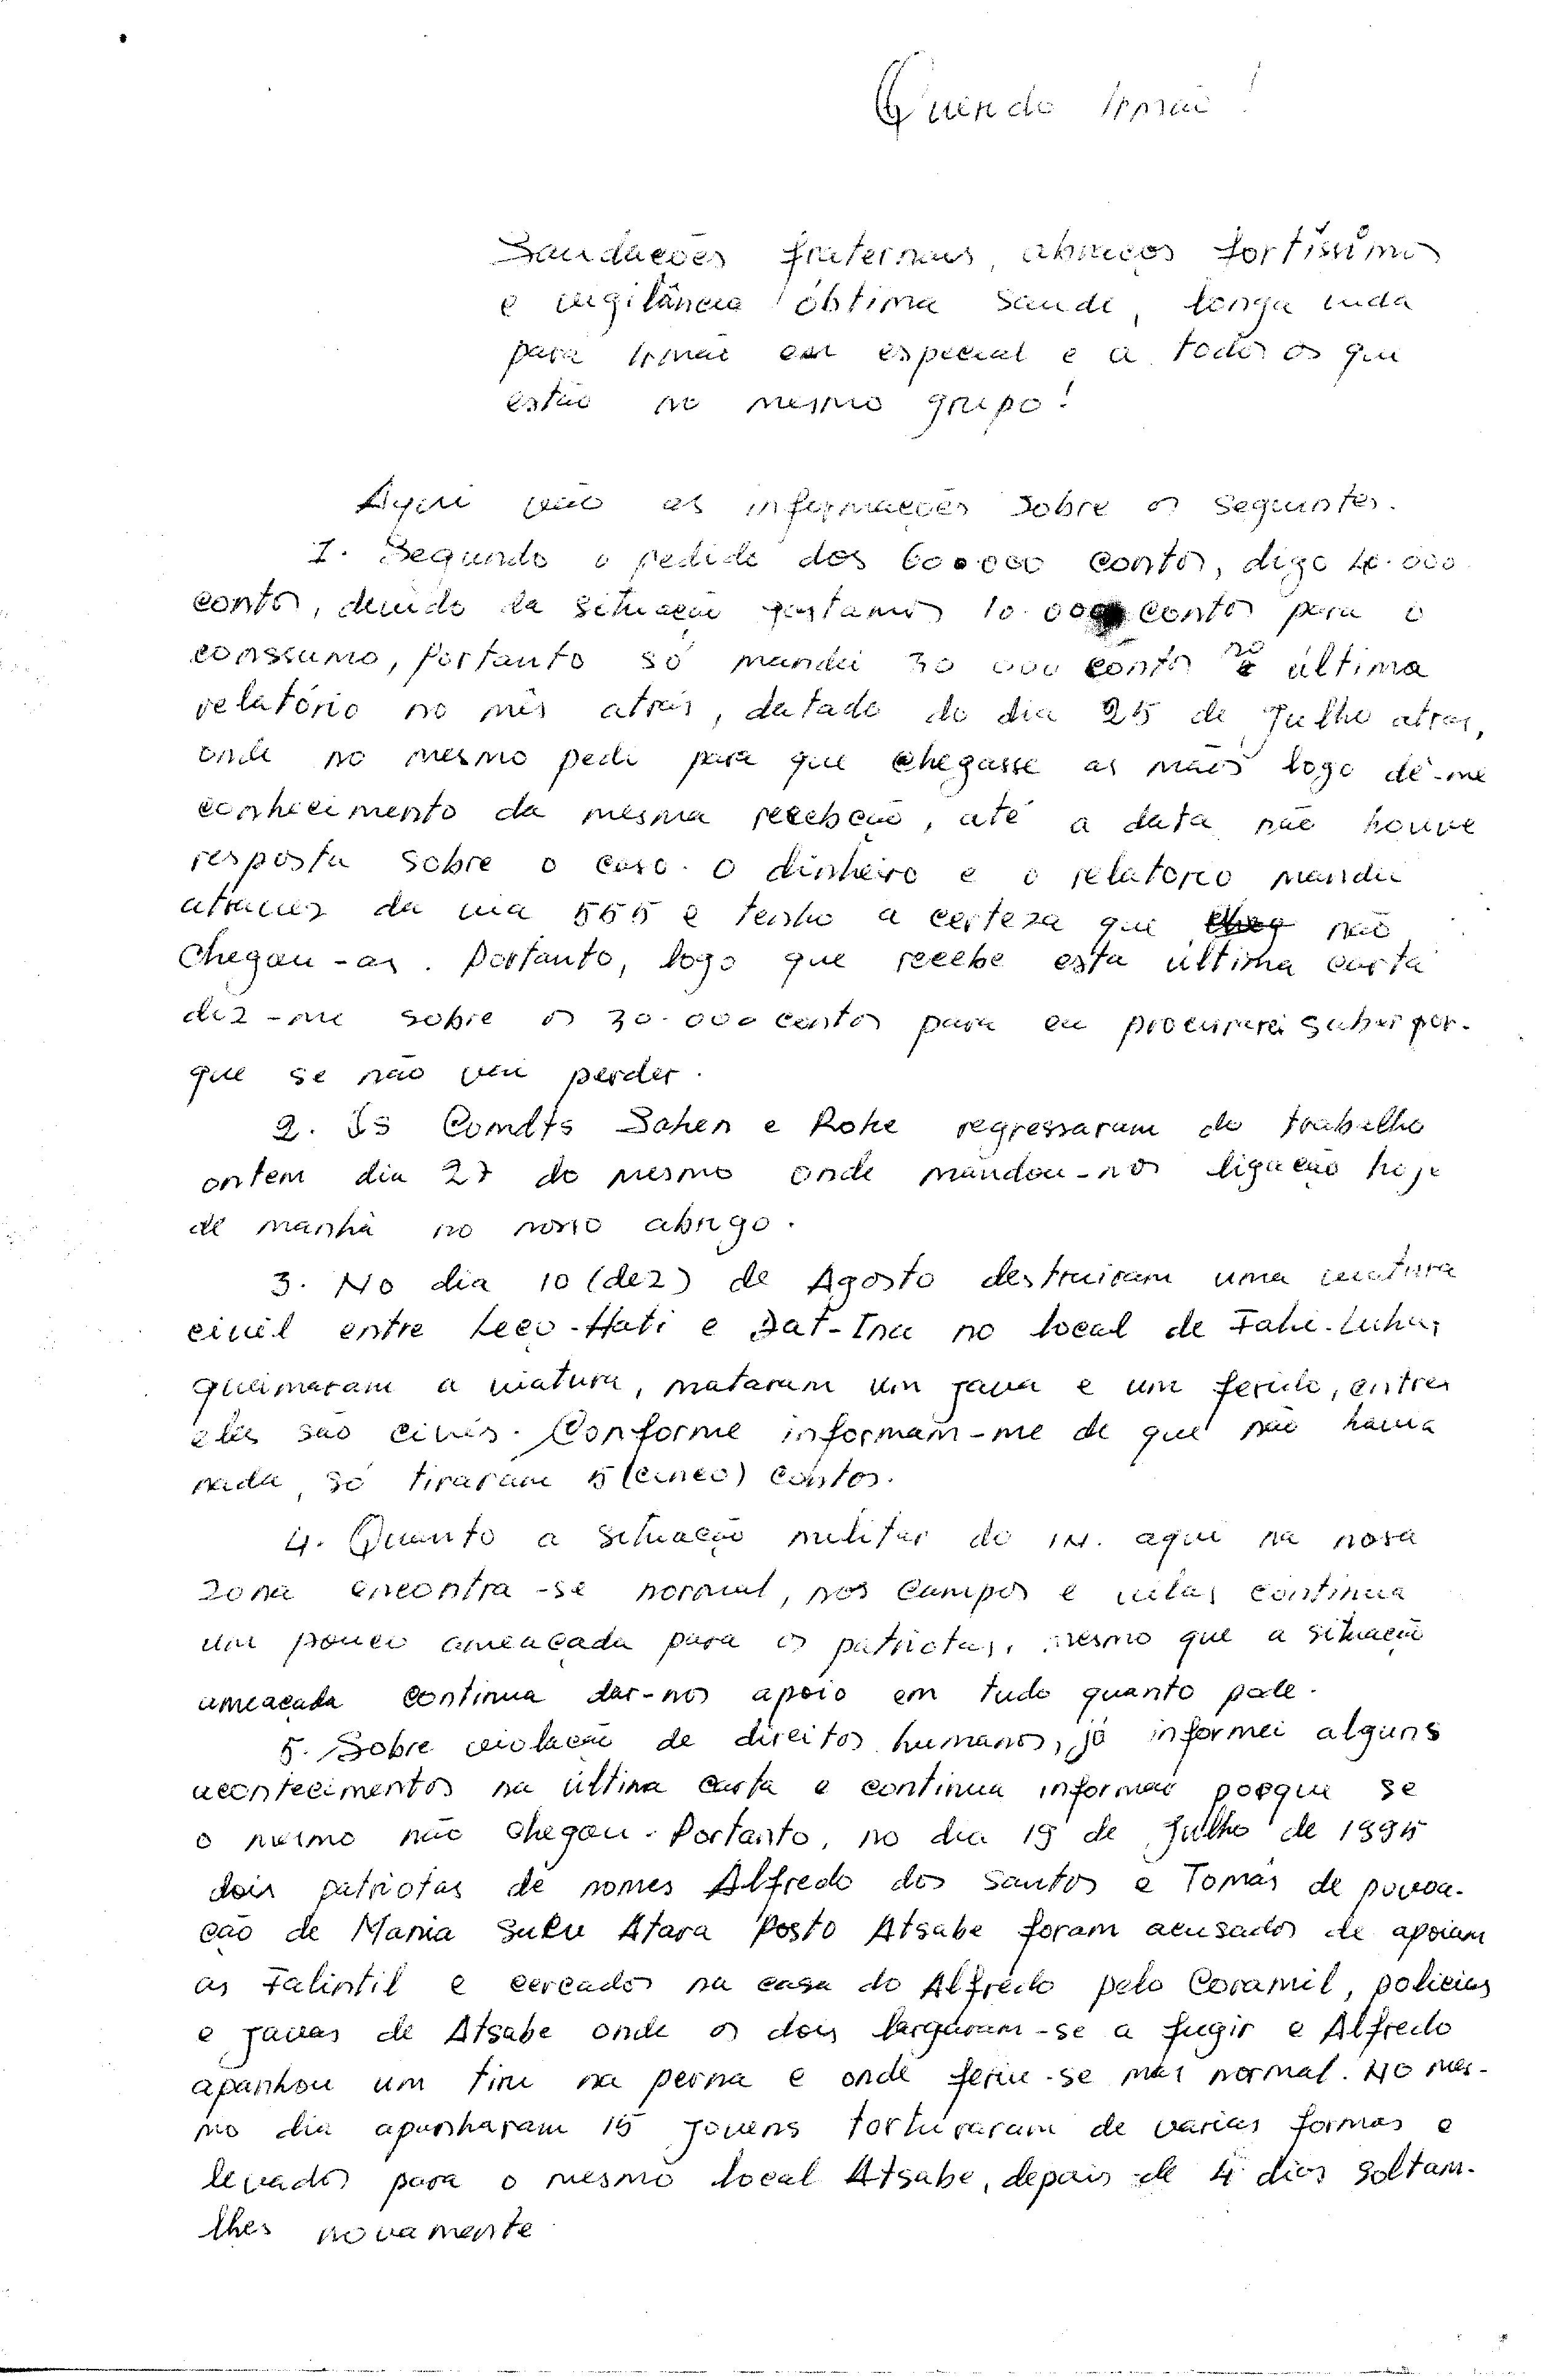 Querido Irmão!
Saudações fraternais, abraços fortíssimos
e vigilância óbtima saude, longa vida
para Irmão em especial e a todos os que
estão no mesmo grupo!
Aqui vão as informações sobre os seguintes.
1. Segundo o pedido dos 600.000 contos, digo 40.000
contos, devido da situação gastamos 10.000 contos para o
conssumo, portanto só mandei 30 000 contos no última
relatório no mês atrás, datado do dia 25 de Julho atras,
onde no mesmo pedi para que chegasse as mãos logo dê-me
conhecimento da mesma recebção, até a data não houve
resposta sobre o caso. O dinheiro e o relatorio mandei
atravez da via 555 e tenho a certeza que não
chegou-as. Portanto, logo que recebe esta última carta
diz-me sobre os 30.000 contos para eu procurarei saber por-
que se não vai perder.
2. Os Comdts Sahen e Roke regressaram do trabalho
ontem dia 27 do mesmo onde mandou-nos ligação hoje
de manhã no nosso abrigo.
3. No dia 10 (dez) de Agosto destruiram uma viatura
civil entre Leço-Hati e Dat-Ina no local de Fahi-Luha,
queimaram a viatura, mataram um java e um ferido, entres
eles são civis. Conforme informam-me de que não havia
nada, só tiraram 5 (cinco) contos.
4. Quanto a situação militar do IN. aqui na nosa
zona encontra-se normal, nos campos e vilas continua
um pouco ameaçada para os patriotas, mesmo que a situação
ameaçada continua dar-nos apoio em tudo quanto pode.
5. Sobre violação de direitos humanos, já informei alguns
acontecimentos na última carta e continua informar porque se
o mesmo não chegou. Portanto, no dia 19 de Julho de 1995
dois patriotas de nomes Alfredo dos Santos e Tomás de povoa-
ção de Mania Suku Atara Posto Atsabe foram acusados de apoiam
as Falintil e cercados na casa do Alfredo pelo Coramil, policias
e javas de Atsabe onde os dois largaram-se a fugir e Alfredo
apanhou um tiro na perna e onde feriu-se mas normal. No mes-
mo dia apanharam 15 jovens torturaram de varias formas e
levados para o mesmo local Atsabe, depois de 4 dias soltam-
lhes novamente